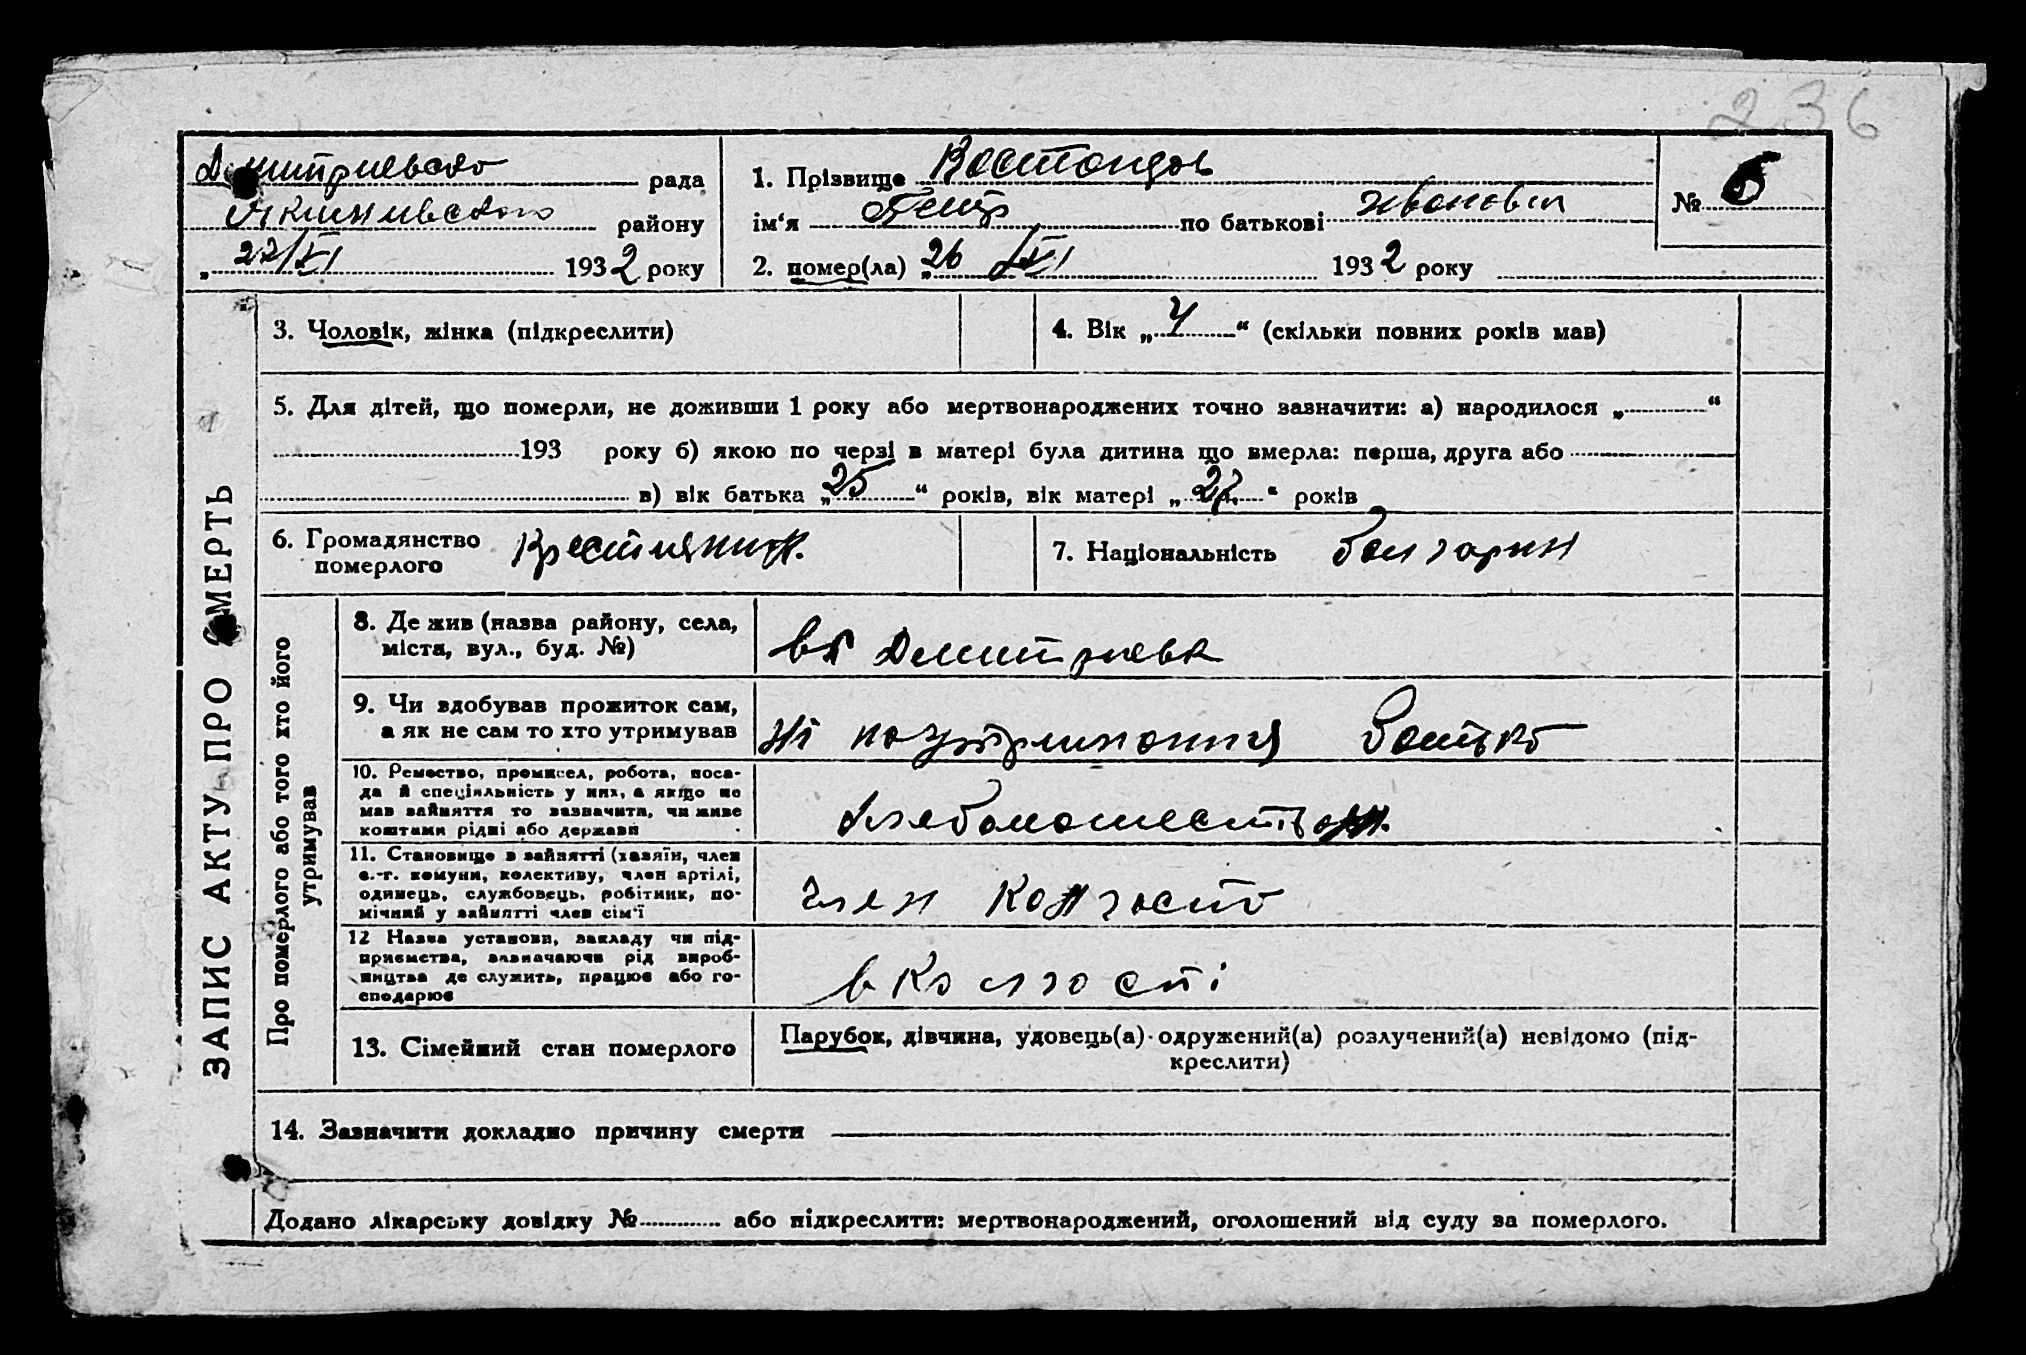 236
Дмитриевсько рада
Якимивского району
„ 27/XI 1932 року
1. Прізвище
ім'я Петр по батькові Иванович
№ 6
2. помер(ла) „26 /XI 1932 року
ЗАПИС АКТУ ПРО СМЕРТЬ
3. Чоловік, жінка (підкреслити)
4. Вік „ “ (скільки повних років мав)
5. Для дітей, що померли, не доживши 1 року або мертвонароджених точно зазначити: а) народилося „ “
193 року б) якою по черзі в матері була дитина що вмерла: перша, друга або
в) вік батька „25“ років, вік матері „22“ років
6. Громадянство
померлого Крестиянин.
7. Національність болгарин
Про померлого або того хто його
утримував
8. Де жив (назва району, села,
міста, вул., буд. №) Дмитриевк
9. Чи вдобував прожиток сам,
а як не сам то хто утримував Ні на утриманния Батько
10. Ремество, промисел, робота, поса-
да й спеціяльність у них, а якщо не
мав зайняття то зазначити, чи живе
коштами рідні або держави
11. Становище в зайнятті (хазяїн, член
с.-г. комуни, колективу, член артілі,
одинець, службовець, робітник, по-
мічний у зайнятті член сім'ї член
12 Назва установи, закладу чи під-
приємства, зазначаючи рід вироб-
ництва де служить, працює або го-
сподарює в Колгости
13. Сімейний стан померлого
Парубок, дівчина, удовець(а) одружений(а) розлучений(а) невідомо (під-
креслити)
14. Зазначити докладно причину смерти
Додано лікарську довідку № або підкреслити: мертвонароджений, оголошений від суду за померлого.